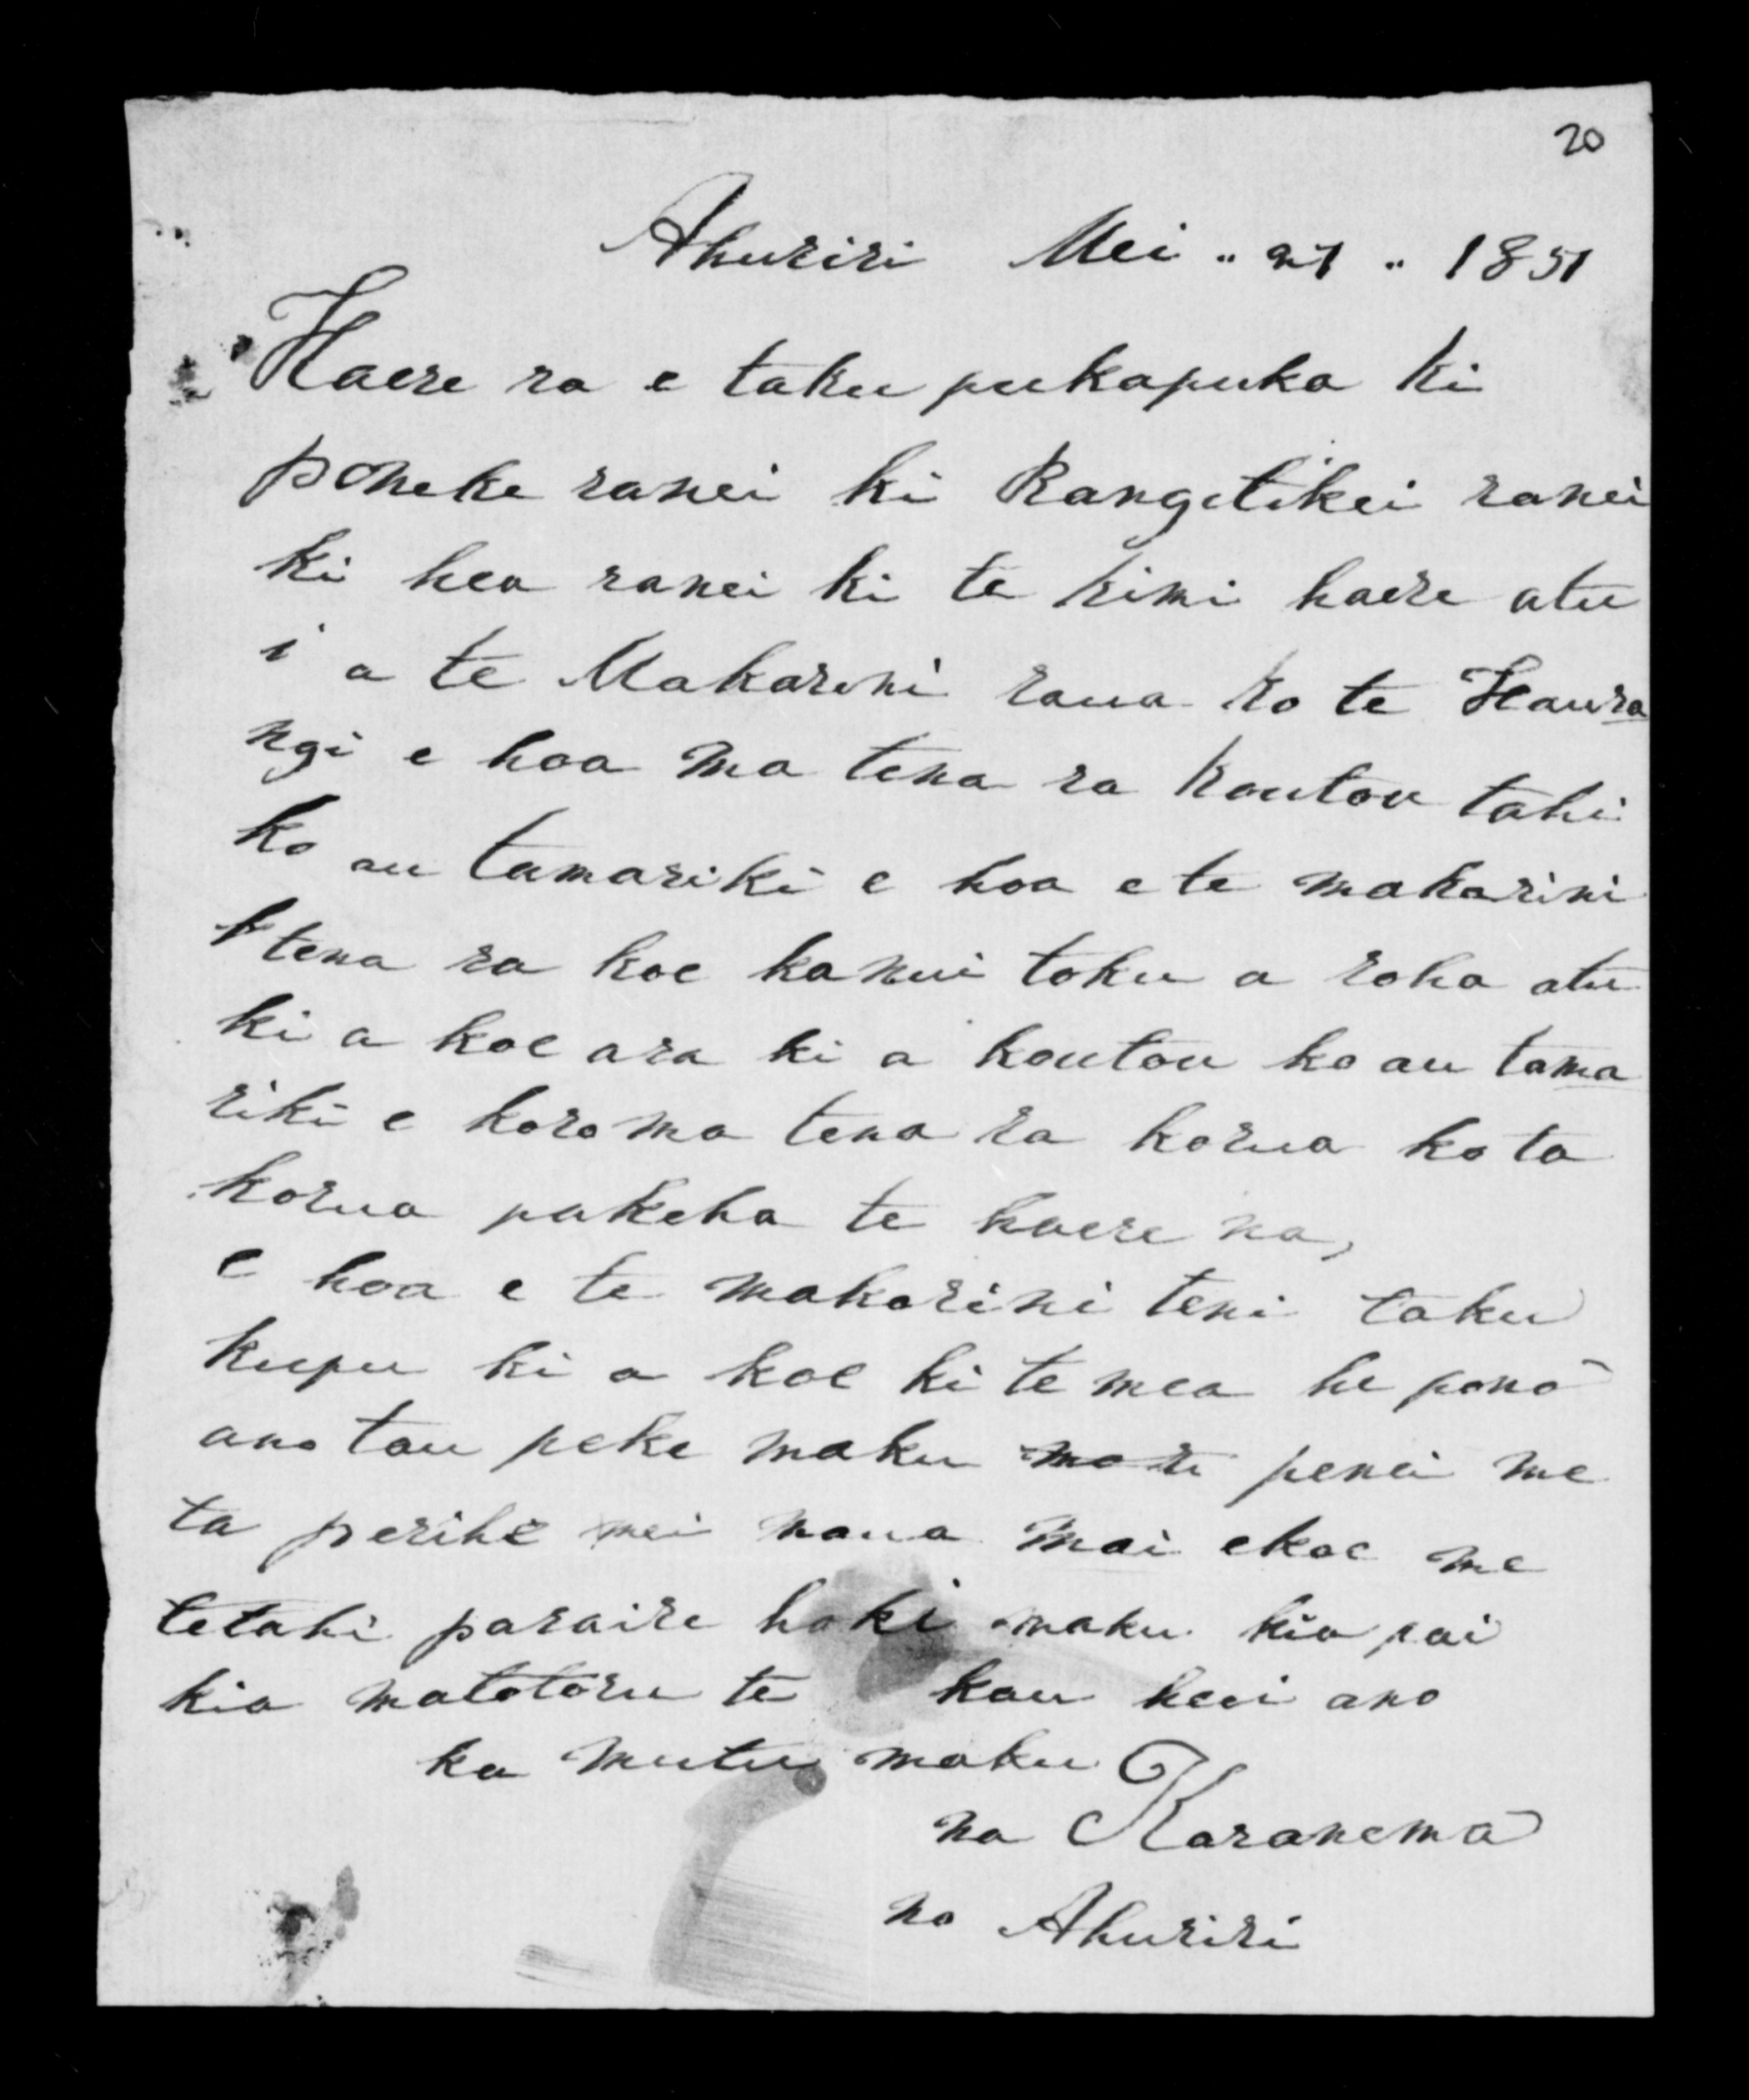 20
Ahuriri Mei " 27 " 1851
Haere ra e taku pukapuka ki
poneke ranei ki Rangitikei ranei
ki hea ranei ki te kimi haere atu
i a te Makarini raua ko te Haura
ngi e hoa ma tena ra koutou tahi
ko au tamariki e hoa e te makarini
tena ra koe kanui toku a roha atu
ki a koe ara ki a koutou ko au tama
riki e koro ma tena ra korua ko ta
korua pakeha te haere na,
e hoa e te makarini teni taku
kupu ki a koe ki te mea he pono
ano tau peke maku penei me
ta perihi mei maua mai ekoe me
tetahi paraire hoki maku kia pai
kia matotoru te kau heoi ano
ka mutu maku
na Karanema
no Ahuriri